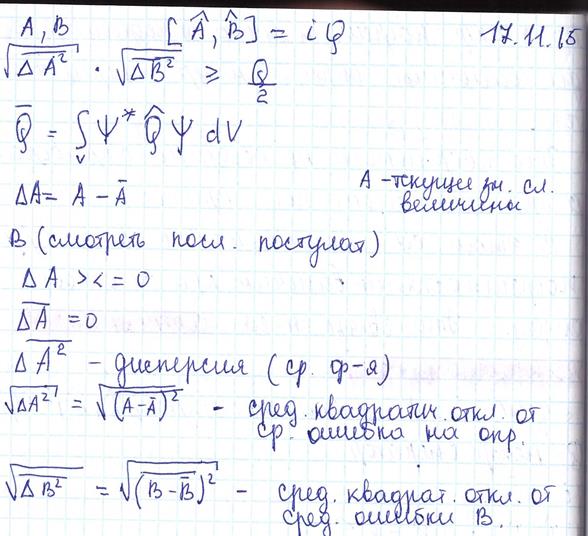 A, B [Â, B̂] = iQ 17.11.15
√(\overline{ΔA²}) · √(\overline{ΔB²}) ≥ Q/2
Q̄ = ∫_V Ψ* Q̂ Ψ dV
ΔA = A − Ā A - текущее зн. сл. величины
B (смотреть посл. постулат)
ΔA >< = 0
\overline{ΔA} = 0
\overline{ΔA²} - дисперсия (ср. ф-я)
√(\overline{ΔA²}) = √(\overline{(A−Ā)²}) - сред. квадратич. откл. от
ср. ошибка на опр.
√(\overline{ΔB²}) = √(\overline{(B−B̄)²}) - сред. квадрат. откл. от
сред. ошибки B.